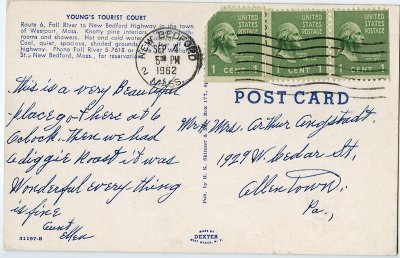 YOUNG'S TOURIST COURT
Route 6, Fall River to New Bedford Highway in the town
of Westport, Mass. Knotty pine interiors,
rooms and showers. Hot and cold water
Cool, quiet, spacious, shaded grounds
highway. Phone Fall River 5-7618 or
St., New Bedford, Mass.
NEW BEDFORD
SEP 4
5 PM
1962
2 MASS.
UNITED STATES POSTAGE
1 CENT 1
UNITED STATES POSTAGE
1 CENT 1
UNITED STATES POSTAGE
1 CENT 1
This is a very Beautiful
place got here at 6
Oclock. Then we had
a diggie Roast it was
Wonderful every thing
is fine
Aunt
Ellen
31197-B
Pub. by H. K. Skinner Box 177,
POST CARD
Mr & Mrs. Arthur Angstadt
1929 W. Cedar St,
Allentown,
Pa.,
MADE BY
DEXTER
WEST NYACK, N. Y.